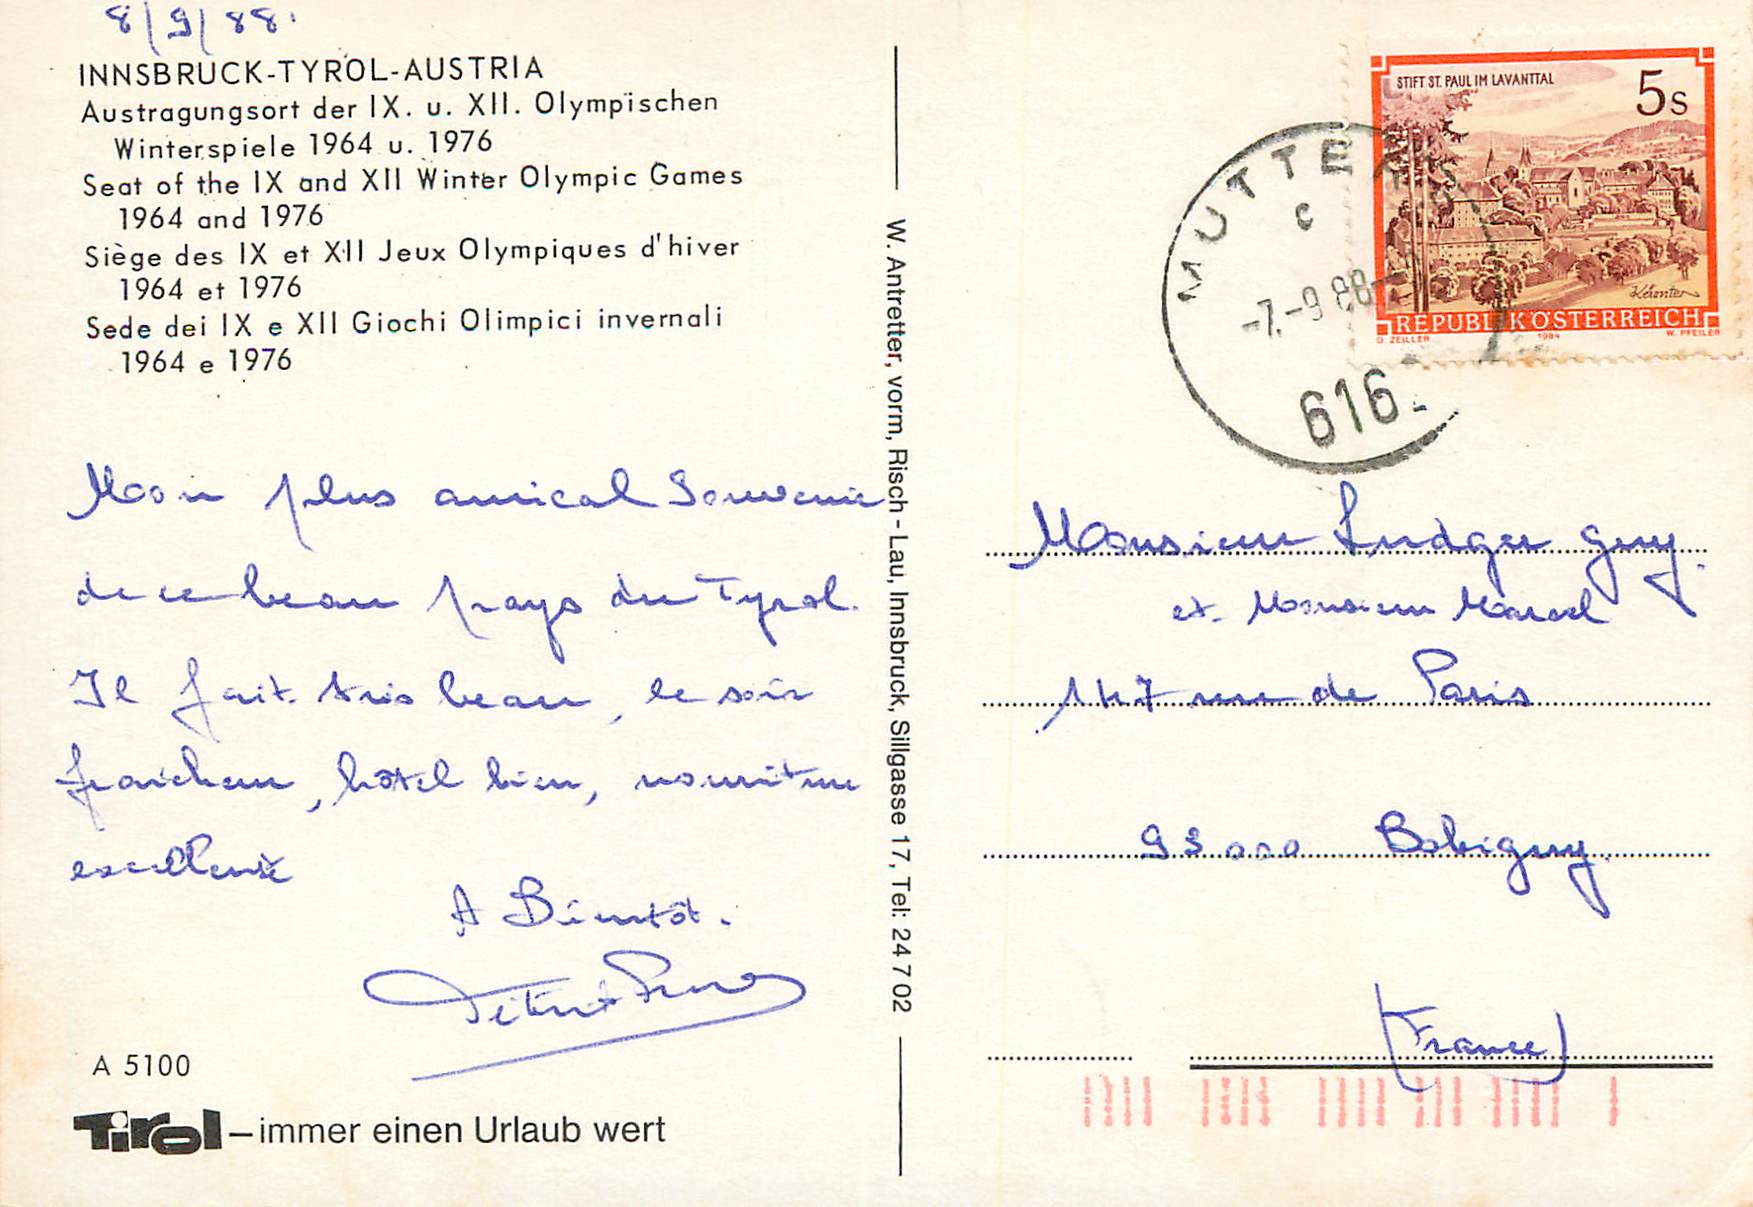 8/9/88.
INNSBRUCK-TYROL-AUSTRIA
Austragungsort der IX. u. XII. Olympischen
Winterspiele 1964 u. 1976
Seat of the IX and XII Winter Olympic Games
1964 and 1976
Siège des IX et XII Jeux Olympiques d'hiver
1964 et 1976
Sede dei IX e XII Giochi Olimpici invernali
1964 e 1976
Mon plus amical Souvenir
de ce beau pays du Tyrol.
Il fait très beau, le soir
fraicheur, hôtel bien, nourriture
excellente
A Bientôt.
A 5100
Tirol – immer einen Urlaub wert
W. Antretter, vorm, Risch - Lau, Innsbruck, Sillgasse 17, Tel: 24 7 02
STIFT ST. PAUL IM LAVANTTAL
5s
Kärnten
REPUBLIK ÖSTERREICH
O. ZEILLER 1984 W. PFEILER
MUTTERS
c
-7.-9 88-
616
Monsieur Ludger Guy.
et Monsieur Marcel
147 rue de Paris
93000 Bobigny.
(France)